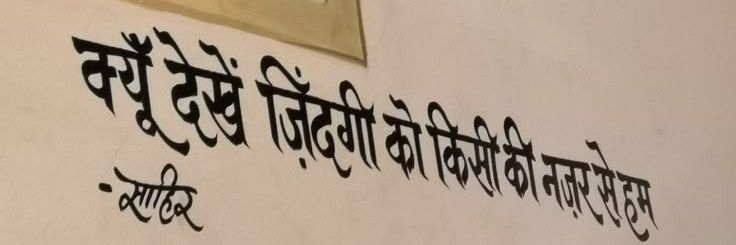 क्यूँ देखें ज़िंदगी को किसी की नज़र से हम
-साहिर